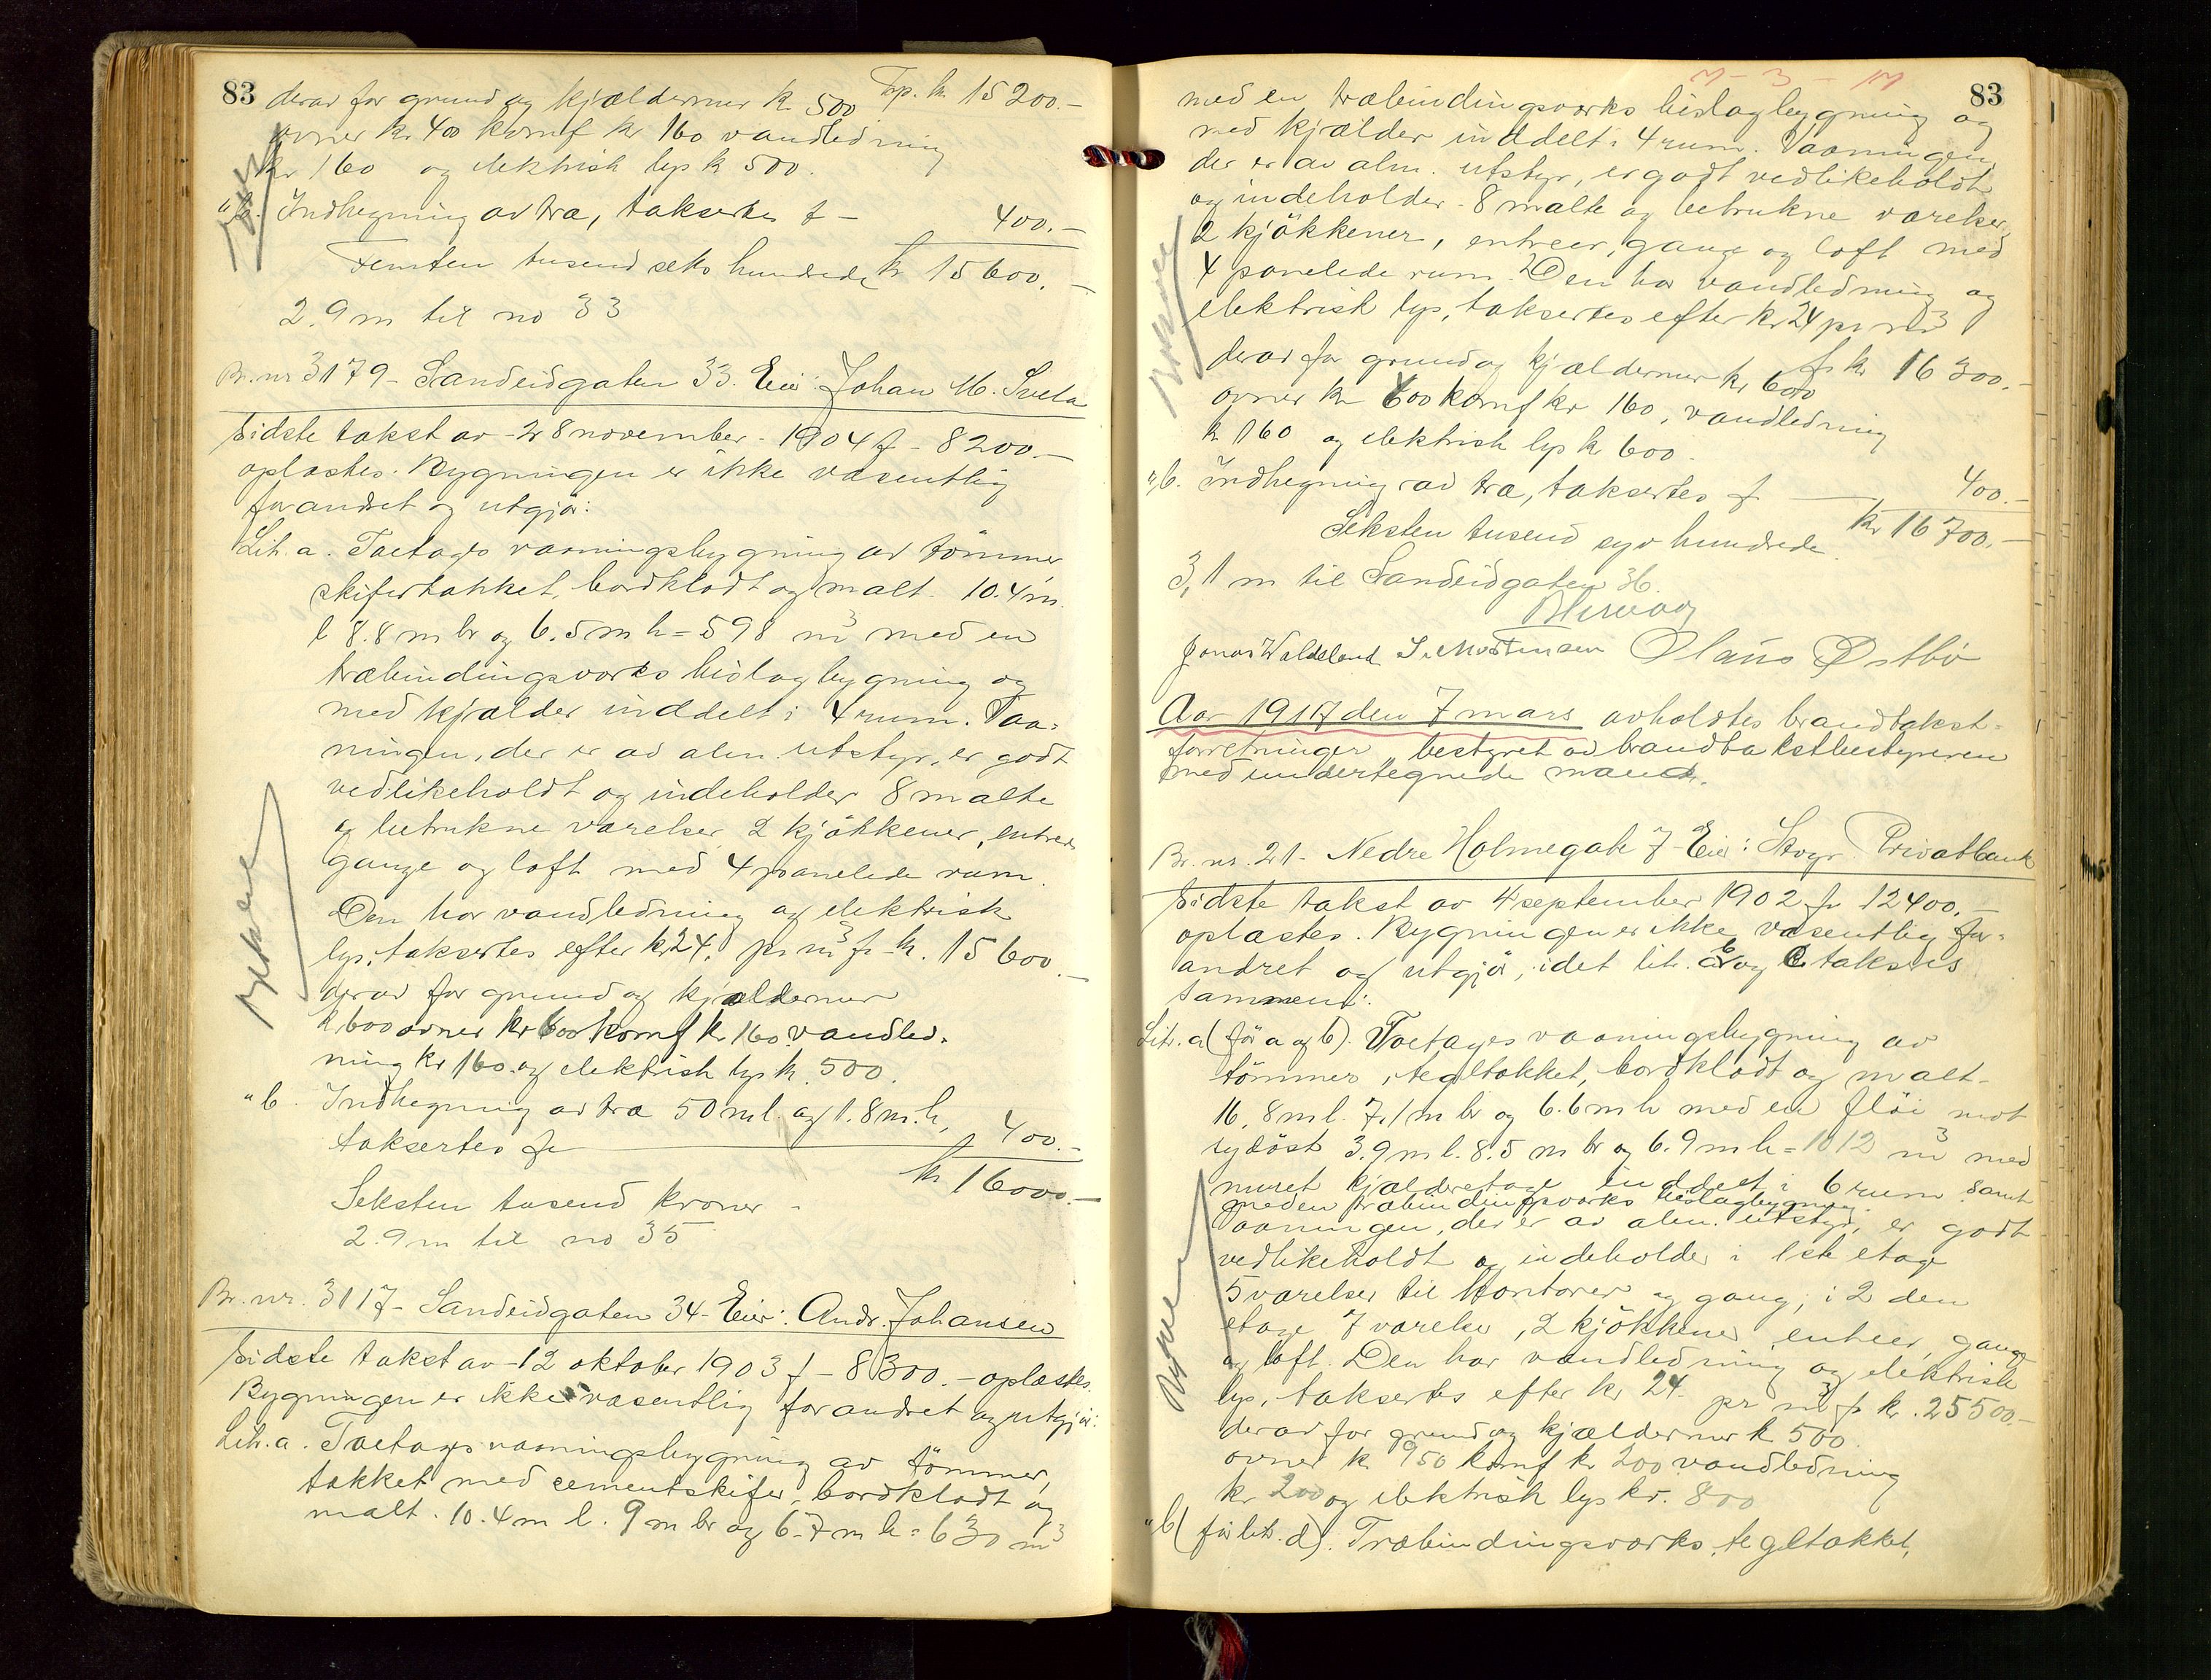 83 Trp. kr 15200.-
derav for grund og kjældermur kr. 500
ovner kr. 400 komf kr 160 vandledning
kr 160 og elektrisk lys kr 500.
" b. Indhegning av træ, taksertes f - 400.-
Femten tusend seks hundrede kr 15600.-
2.9 m til no 33
Br. nr 3179 - Sandeidgaten 33. Eier: Johan M. Sveta
Sidste takst av - 28 november - 1904 f - 8200.-
oplæstes. Bygningen er ikke væsentlig
forandret og utgjør:
Lit. a. Toetages vaaningsbygning av tømmer
skifertækket, bordklædt og malt. 10.4 m.
l 8.8 m br og 6.5 m h = 598 m3 med en
træbindingsværks bislagbygning og
med kjælder inddelt i 4 rum. Vaa-
ningen, der er av alm. utstyr, er godt
vedlikeholdt og indeholder 8 malte
og betrukne værelser, 2 kjøkkener, entreer
gange og loft med 4 panelede rum.
Den har vandledning og elektrisk
lys, taksertes efter kr 24. pr m3 f. kr. 15600.-
derav for grund og kjældermur
kr 600 ovner kr 600 komf kr. 160. vandled-
ning kr 160. og elektrisk lys kr. 500.
" b. Indhegning av træ 50 m l. og 1.8 m. h,
taksertes for 400.-
kr 16000.-
Seksten tusend kroner -
2.9 m til no 35
Br. nr. 3117 - Sandeidgaten 34 - Eier: Andr. Johansen
Sidste takst av - 12 oktober 1903 f - 8300.- oplæstes.
Bygningen er ikke væsentlig forandret og utgjør:
Lit. a. Toetages vaaningsbygning av tømmer,
tækket med cementskifer, bordklædt og
malt. 10.4 m l. 9 m br og 6.7 m h = 630 m3
7 - 3 - 17
83
med en træbindingsværks bislagbygning og
med kjælder inddelt i 4 rum. Vaaningen,
der er av alm. utstyr, er godt vedlikeholdt
og indeholder - 8 malte og betrukne værelser,
2 kjøkkener, entreer, gange og loft med
4 panelede rum. Den har vandledning og
elektrisk lys, taksertes efter kr 24 pr m3
f. kr 16300.-
derav for grund og kjældermur kr 600
ovner kr 600 komf kr 160, vandledning
kr 160 og elektrisk lys kr 600.
" b. Indhegning av træ, taksertes f. 400.-
kr 16700.-
Seksten tusend syv hundrede.
3,1 m til Sandeidgaten 36.
Jonas Waldeland S. Mortensen Olaus Østbø
Aar 1917 den 7 mars avholdtes brandtakst-
forretninger bestyret av brandtakstbestyreren
med undertegnede mænd.
Br. nr. 21 - Nedre Holmegate 7 - Eier: Stvgr. Privatbank
Sidste takst av 4 september 1902 f. 12400.-
oplæstes. Bygningen er ikke væsentlig for-
andret og utgjør, idet lit. b og c takseres
sammen:
Lit. a (før a og b). Toetages vaaningsbygning av
tømmer, tegltækket, bordklædt og malt -
16,8 m l. 7.1 m br og 6.6 m h med en fløi mot
sydøst 3.9 m l. 8.5 m br og 6.9 m h = 1012 m3 med
muret kjælderetage inddelt i 6 rum samt
med en træbindingsværks bislagbygning.
Vaaningen, der er av alm. utstyr, er godt
vedlikeholdt og indeholder i 1ste etage
5 værelser til kontorer og gang, i 2 den
etage 7 værelser, 2 kjøkkener entreer, gange
og loft. Den har vandledning og elektrisk
lys, taksertes efter kr 24. pr m3 f. kr. 25500.-
derav for grund og kjældermur kr 500.
ovner kr 950 komf kr 200 vandledning
kr 200 og elektrisk lys kr. 800
" b (før lit. d). Træbindingsværks, tegltækket,